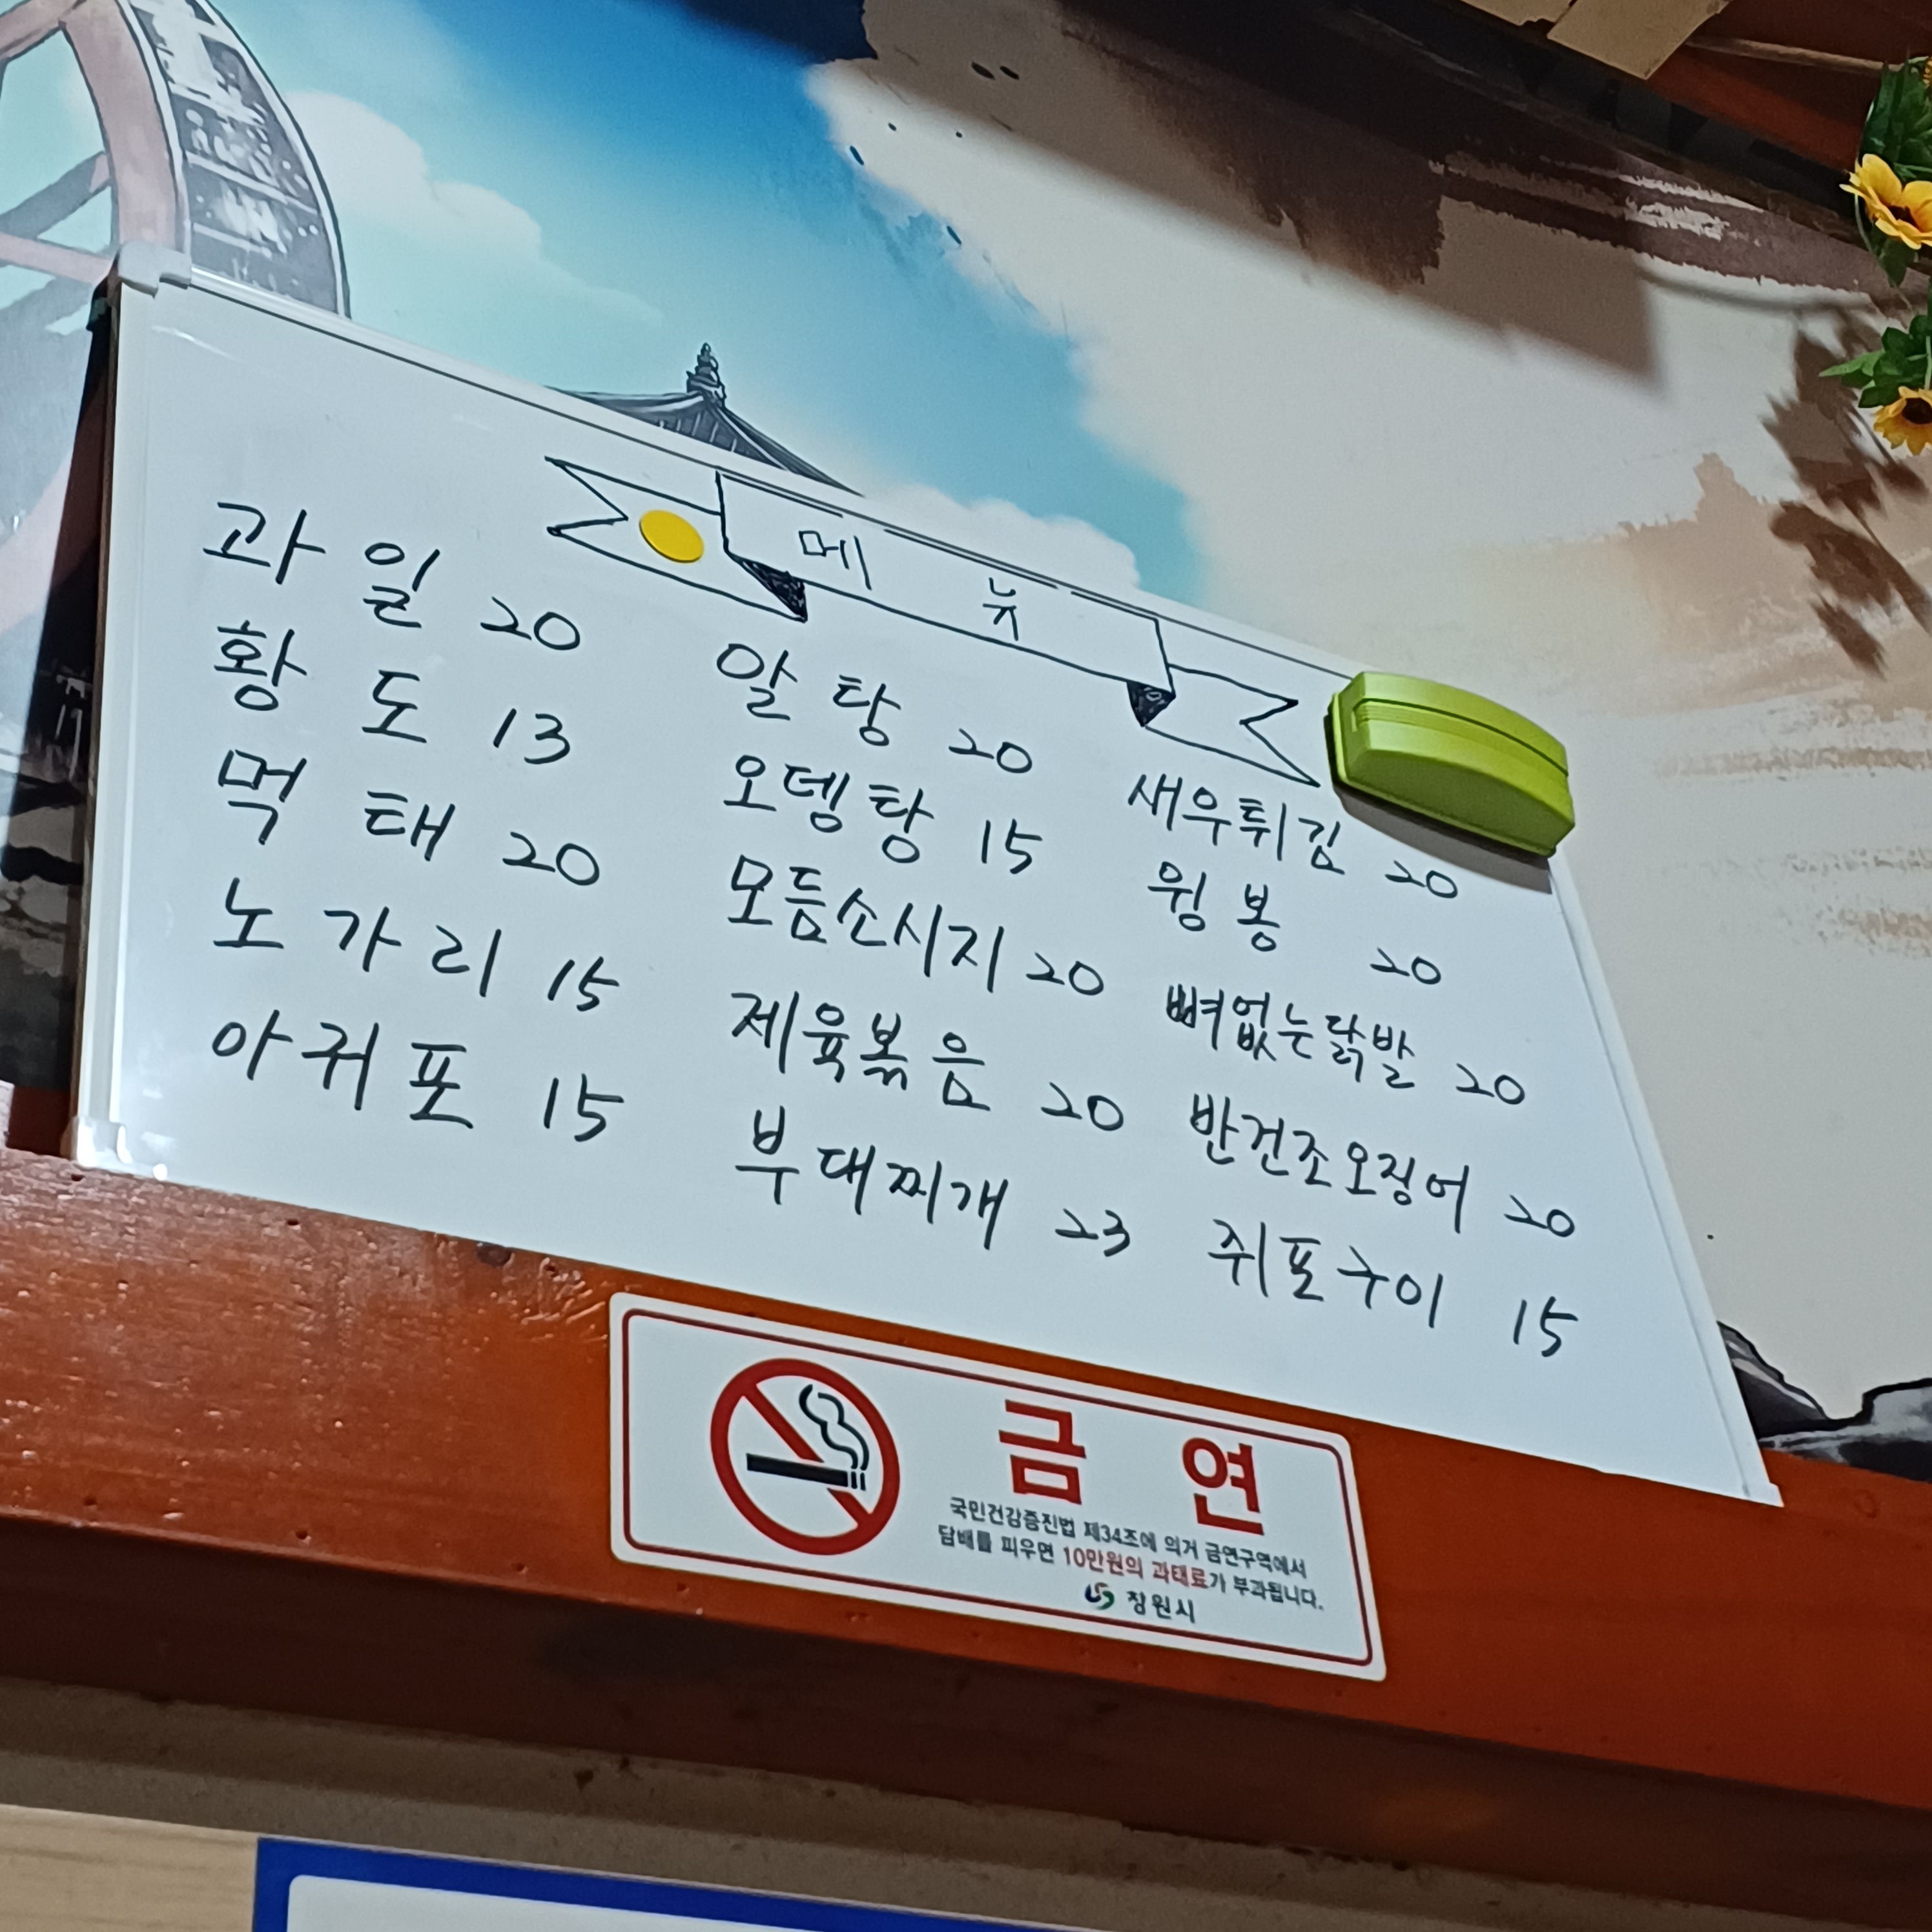 메뉴
과일 20
황도 13
먹태 20
노가리 15
아귀포 15
알탕 20
오뎅탕 15
모듬소시지 20
제육볶음 20
부대찌개 23
새우튀김 20
윙봉 20
뼈없는닭발 20
반건조오징어 20
쥐포구이 15
금연
국민건강증진법 제34조에 의거 금연구역에서
담배를 피우면 10만원의 과태료가 부과됩니다.
창원시